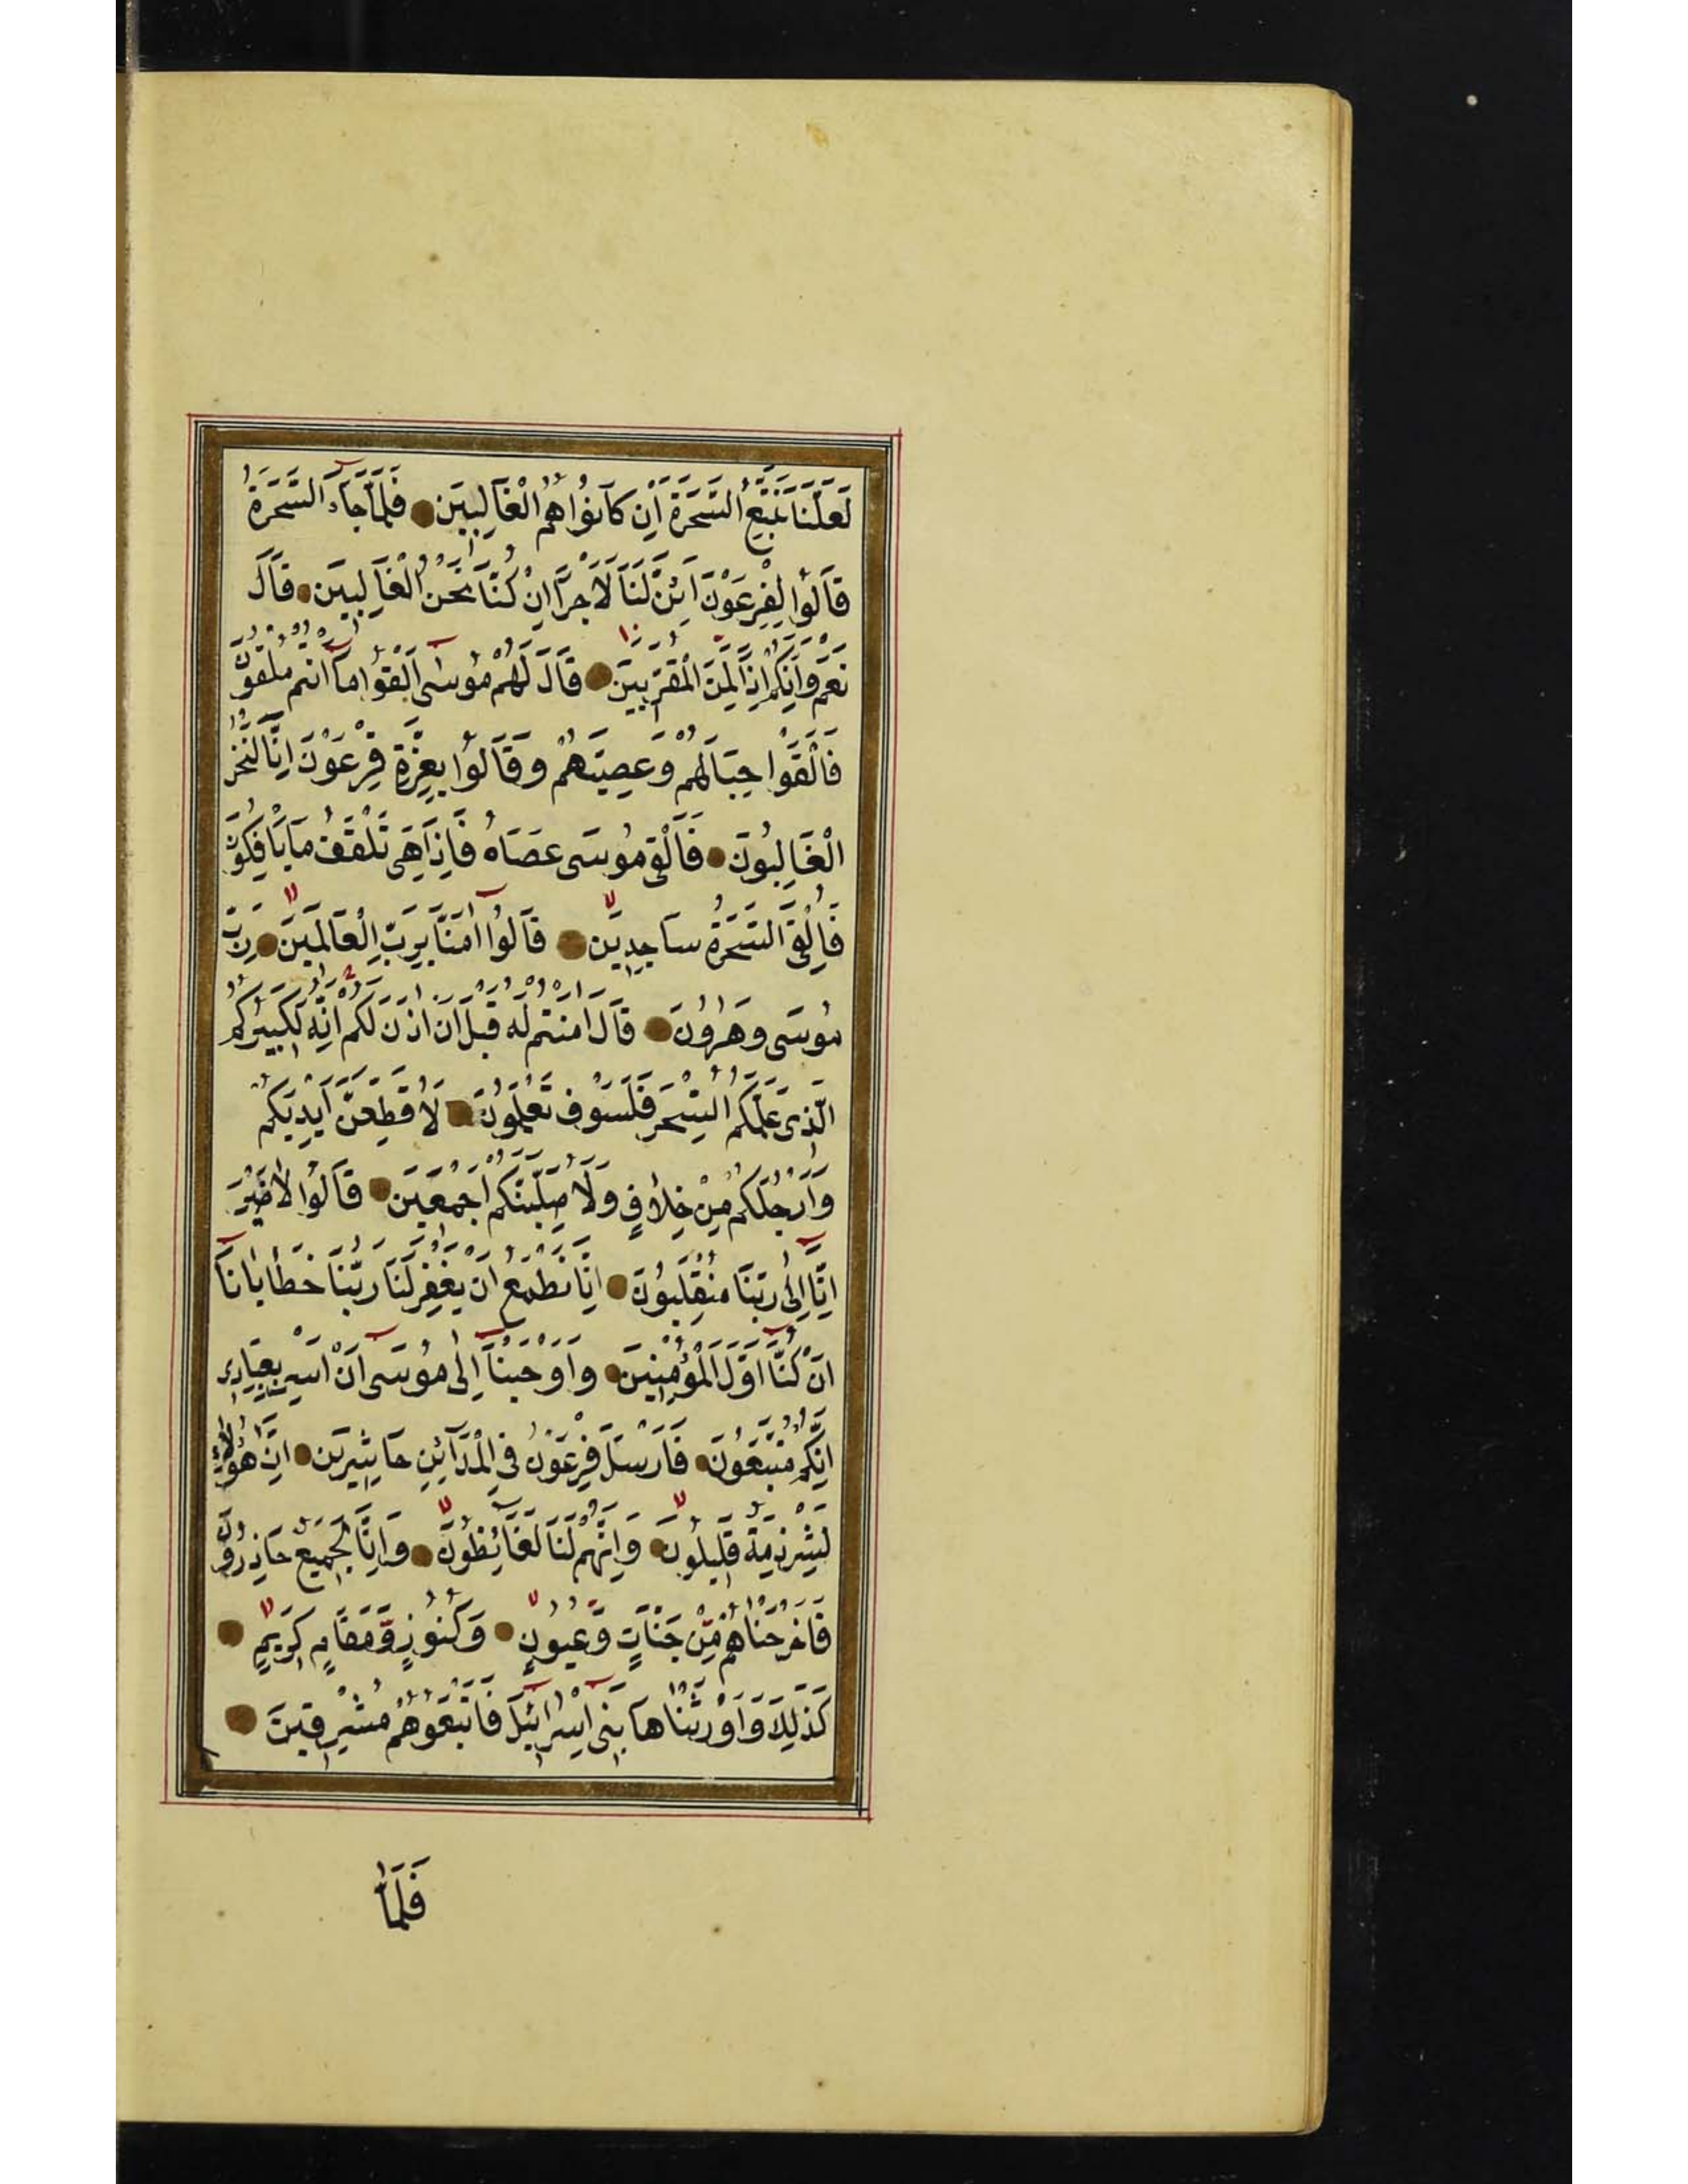 لَعَلَّنَا نَتَّبِعُ السَّحَرَةَ اِنْ كَانُوا هُمُ الْغَالِبِينَ فَلَمَّا جَآءَ السَّحَرَةُ
قَالُوا لِفِرْعَوْنَ اَئِنَّ لَنَا لَاَجْرًا اِنْ كُنَّا نَحْنُ الْغَالِبِينَ قَالَ
نَعَمْ وَاِنَّكُمْ اِذًا لَمِنَ الْمُقَرَّبِينَ قَالَ لَهُمْ مُوسٰٓى اَلْقُوا مَآ اَنْتُمْ مُلْقُونَ
فَاَلْقَوْا حِبَالَهُمْ وَعِصِيَّهُمْ وَقَالُوا بِعِزَّةِ فِرْعَوْنَ اِنَّا لَنَحْنُ
الْغَالِبُونَ فَاَلْقٰى مُوسٰى عَصَاهُ فَاِذَا هِيَ تَلْقَفُ مَا يَاْفِكُونَ
فَاُلْقِيَ السَّحَرَةُ سَاجِدِينَ قَالُوٓا اٰمَنَّا بِرَبِّ الْعَالَمِينَ رَبِّ
مُوسٰى وَهٰرُونَ قَالَ اٰمَنْتُمْ لَهُ قَبْلَ اَنْ اٰذَنَ لَكُمْ اِنَّهُ لَكَبِيرُكُمُ
الَّذِي عَلَّمَكُمُ السِّحْرَ فَلَسَوْفَ تَعْلَمُونَ لَاُقَطِّعَنَّ اَيْدِيَكُمْ
وَاَرْجُلَكُمْ مِنْ خِلَافٍ وَلَاُصَلِّبَنَّكُمْ اَجْمَعِينَ قَالُوا لَا ضَيْرَ
اِنَّآ اِلٰى رَبِّنَا مُنْقَلِبُونَ اِنَّا نَطْمَعُ اَنْ يَغْفِرَ لَنَا رَبُّنَا خَطَايَانَآ
اَنْ كُنَّآ اَوَّلَ الْمُؤْمِنِينَ وَاَوْحَيْنَآ اِلٰى مُوسٰٓى اَنْ اَسْرِ بِعِبَادِي
اِنَّكُمْ مُتَّبَعُونَ فَاَرْسَلَ فِرْعَوْنُ فِي الْمَدَآئِنِ حَاشِرِينَ اِنَّ هٰٓؤُلَآءِ
لَشِرْذِمَةٌ قَلِيلُونَ وَاِنَّهُمْ لَنَا لَغَآئِظُونَ وَاِنَّا لَجَمِيعٌ حَاذِرُونَ
فَاَخْرَجْنَاهُمْ مِنْ جَنَّاتٍ وَّعُيُونٍ وَكُنُوزٍ وَّمَقَامٍ كَرِيمٍ
كَذٰلِكَ وَاَوْرَثْنَاهَا بَنِىٓ اِسْرَآئِيلَ فَاَتْبَعُوهُمْ مُشْرِقِينَ
فَلَمَّا